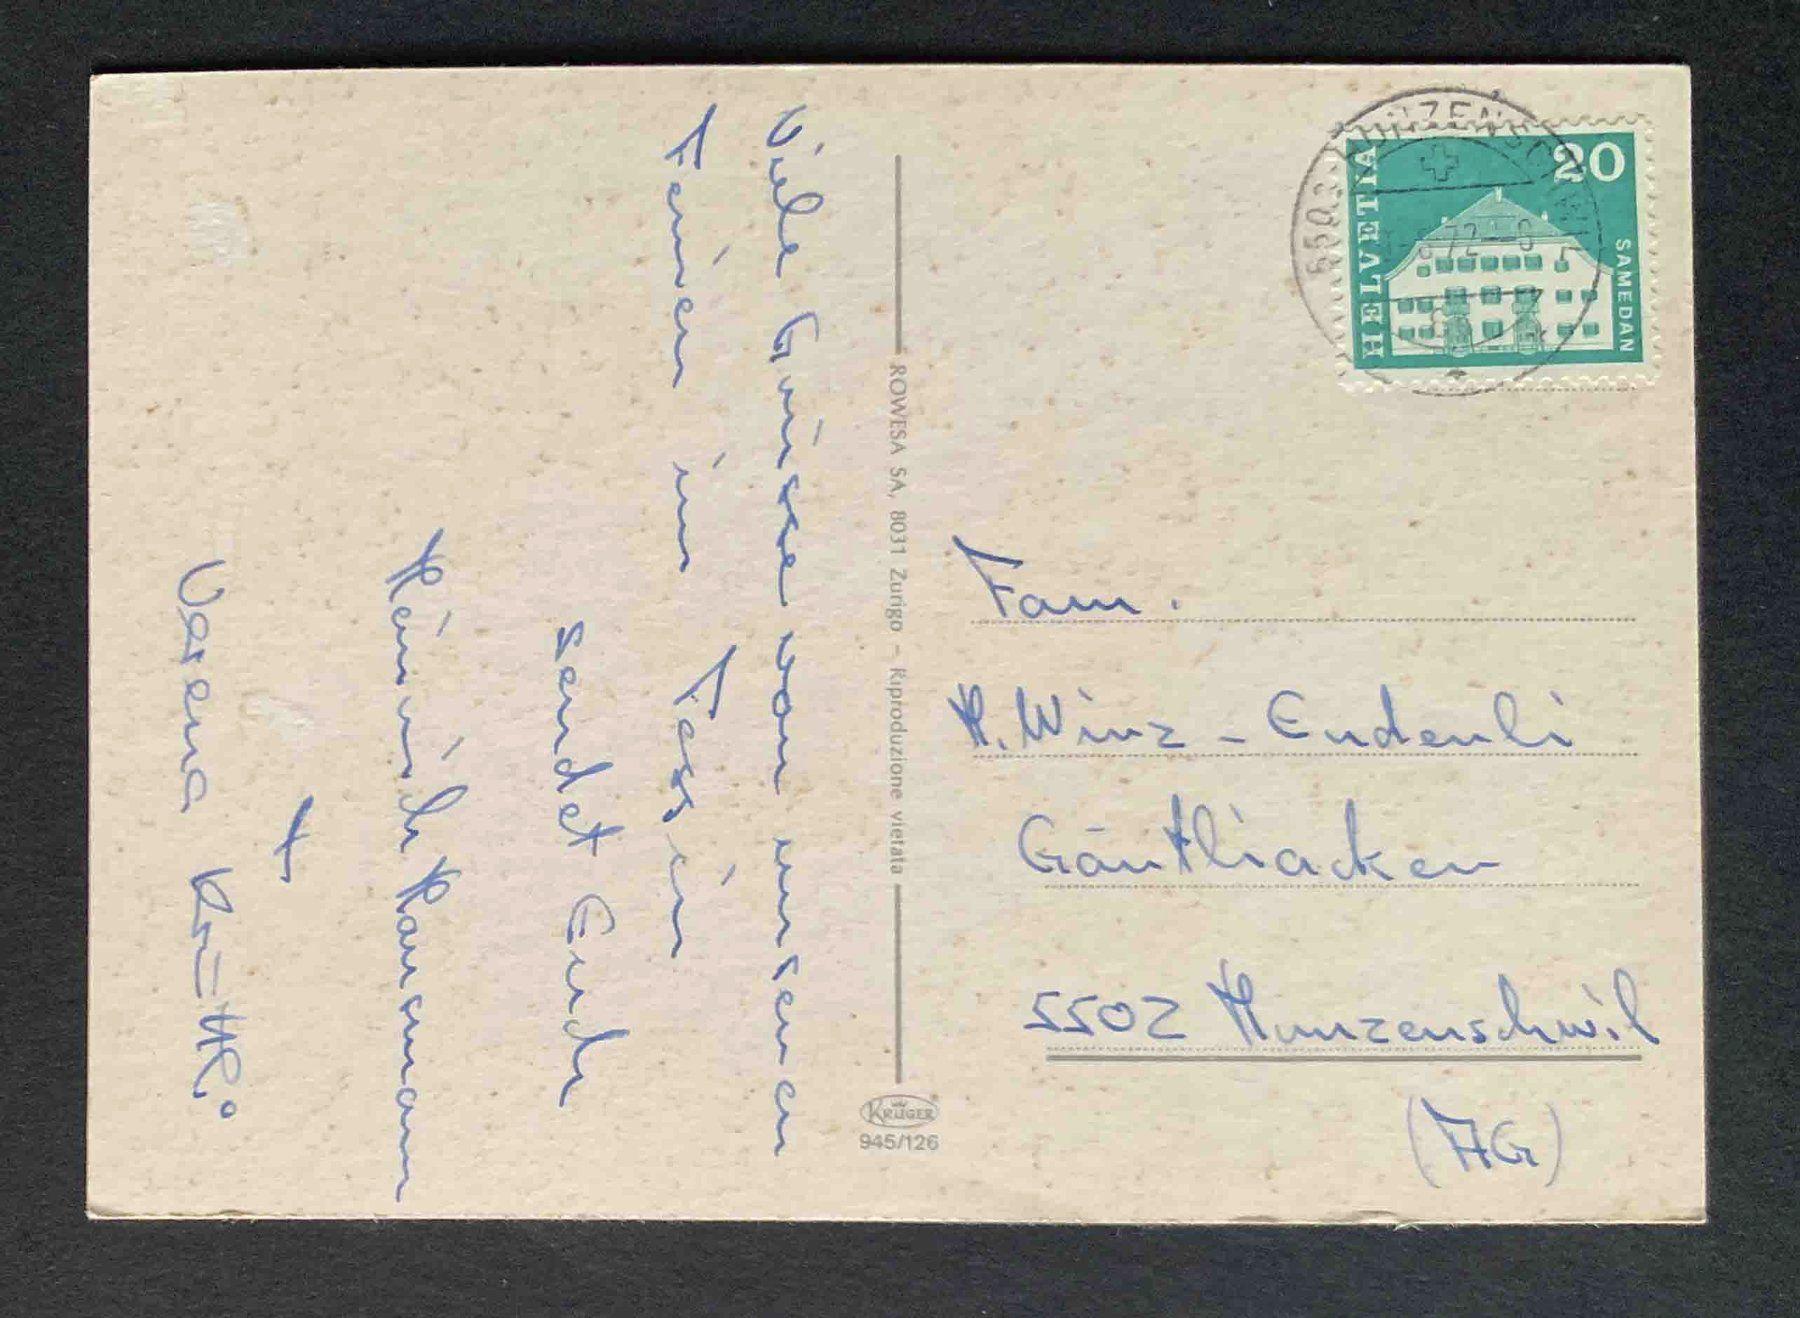 Viele Grüsse von unseren
Ferien im Tessin
sendet Euch
Heinrich Hausmann
+
Verena
ROWESA SA, 8031 Zurigo – Riproduzione vietata
KRÜGER
945/126
HELVETIA
20
SAMEDAN
Fam.
H. Winz - Enderli
5502 Hunzenschwil
(AG)